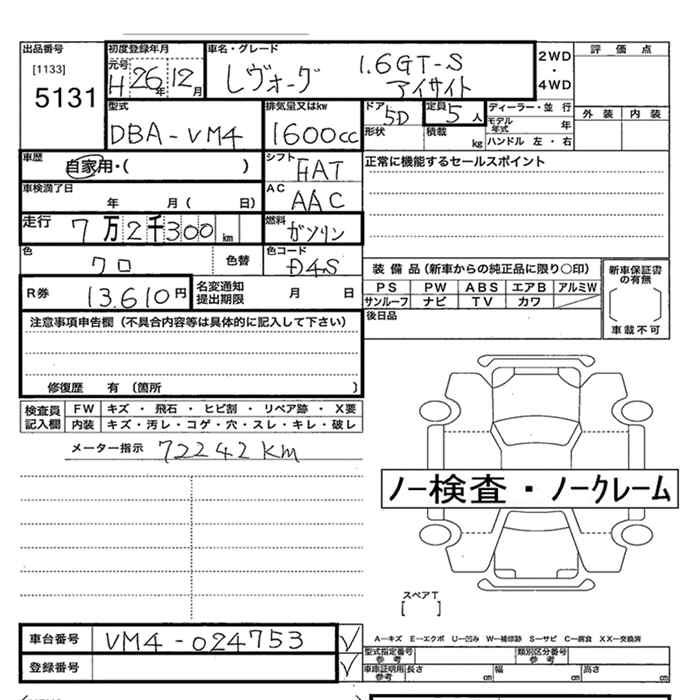 出品番号
[1133]
5131
初度登録年月
元号
H 26年 12月
車名・グレード
レヴォーグ 1.6GT-S
アイサイト
2WD
・
4WD
評価点
外装 内装
型式
DBA-VM4
排気量又はkw
1600cc
ドア
5D
形状
定員
5人
積載
kg
ディーラー・並行
モデル年式 年
ハンドル 左・右
車歴
自家用・( )
シフト
FAT
正常に機能するセールスポイント
車検満了日
年 月( 日)
AC
AAC
走行 7万2千300km
燃料
ガソリン
色
クロ
色替
色コード
D4S
R券 13,610円
名変通知
提出期限
月 日
装備品(新車からの純正品に限り○印)
PS PW ABS エアB アルミW
サンルーフ ナビ TV カワ
後日品
新車保証書
の有無
[ ]
車載不可
注意事項申告欄(不具合内容等は具体的に記入して下さい)
修復歴 有 (箇所 )
検査員
記入欄
FW キズ・飛石・ヒビ割・リペア跡・X要
内装 キズ・汚レ・コゲ・穴・スレ・キレ・破レ
メーター指示 72242Km
ノー検査・ノークレーム
スペアT
[ ]
車台番号 VM4-024753 ✓
登録番号 ✓
A―キズ E―エクボ U―凹み W―補修跡 S―サビ C―腐食 XX―交換済
型式指定番号
参考
類別区分番号
参考
車車証明用
参考
長さ cm 幅 cm 高さ cm